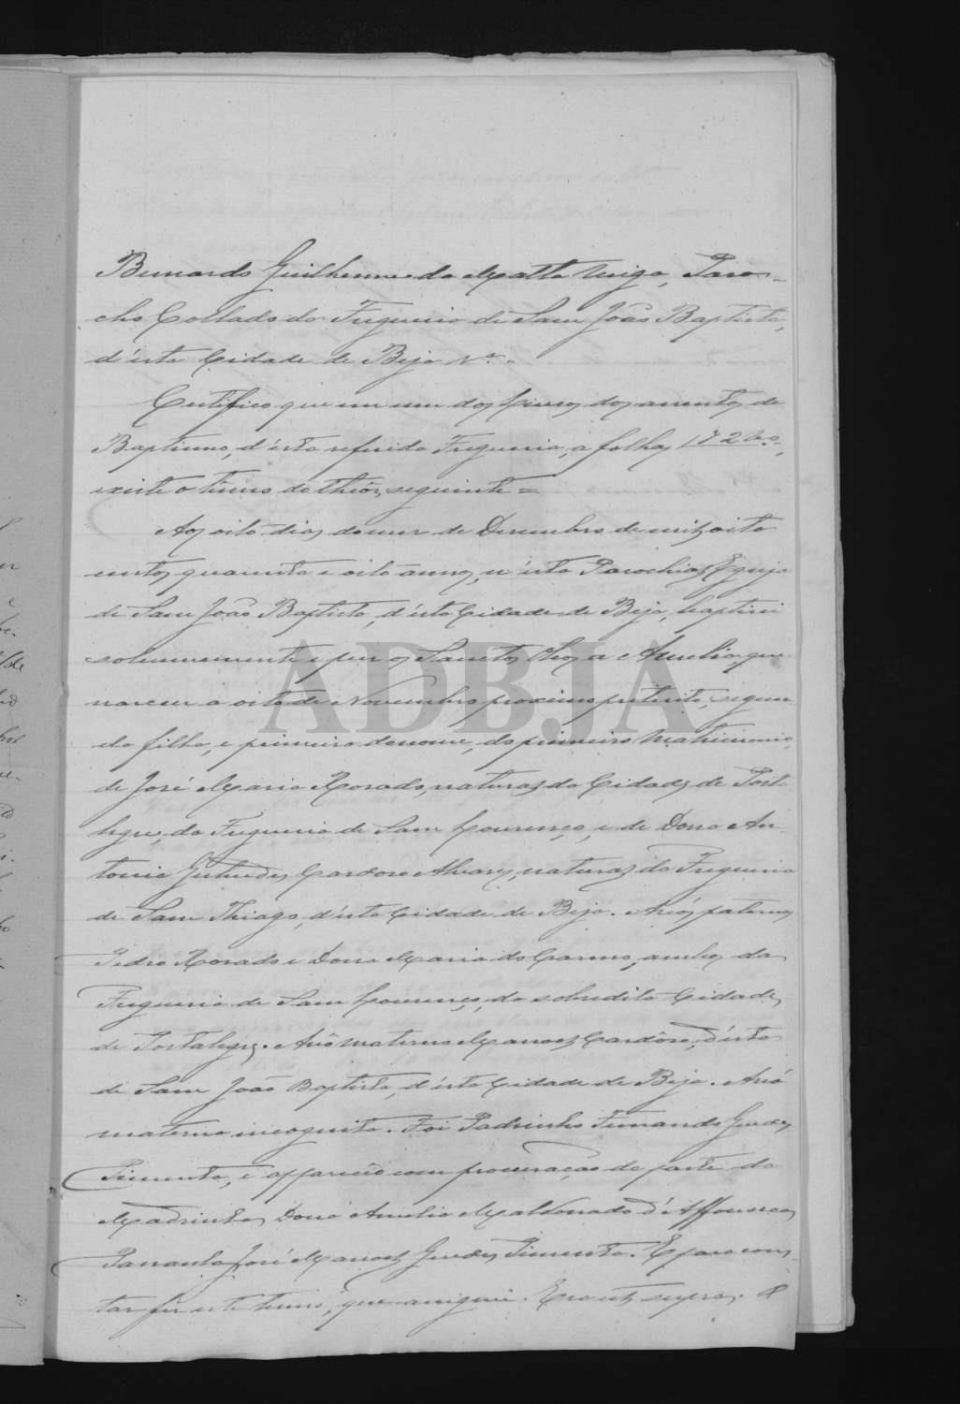 Bernardo Guilherme da Matta Veiga, Paro-
cho Collado da Freguesia de Sam João Baptista,
d'ésta Cidade de Beja Vª.
Certifico que em um dos livros dos assentos de
Baptismo, d'ésta referida Freguesia, a folhas 172
existe o termo do theôr seguinte =
Aos oito dias do mez de Dezembro de mil, oito
centos, quarenta e oito annos, n'ésta Parochial Egreja
de Sam João Baptista, d'ésta Cidade de Beja, baptisei
solemnemente e puz os Sanctos Oleos a Amelia, que
ADBJA
nasceu a oito de Novembro proximo preterito, segun
da filha, e primeira do nome, do primeiro Matrimonio,
de José Maria Morado, natural da Cidade de Port-
legre, da Freguesia de Sam Lourenço, e de Dona An-
tonia Gertrudes Cardoso Alvares, natural da Freguesia
de Sam Thiago, d'ésta Cidade de Beja. Avós paternos
Pedro Morado e Dona Maria do Carmo, ambos da
Freguesia de Sam Lourenço, da sobredita Cidade,
de Portalegre. Avô materno Manoel Cardôso, d'ésta
de Sam João Baptista, d'ésta Cidade de Beja. Avó
materna incognita. Foi Padrinho Fernando Guedes
Pimenta, e appareceo com procuração de parte da
Madrinha, Dona Amelia Maldonado d'Affonseca
José Manoel Guedes Pimenta. E para cons-
tar fiz este termo, que assignei. Era ut supra. O